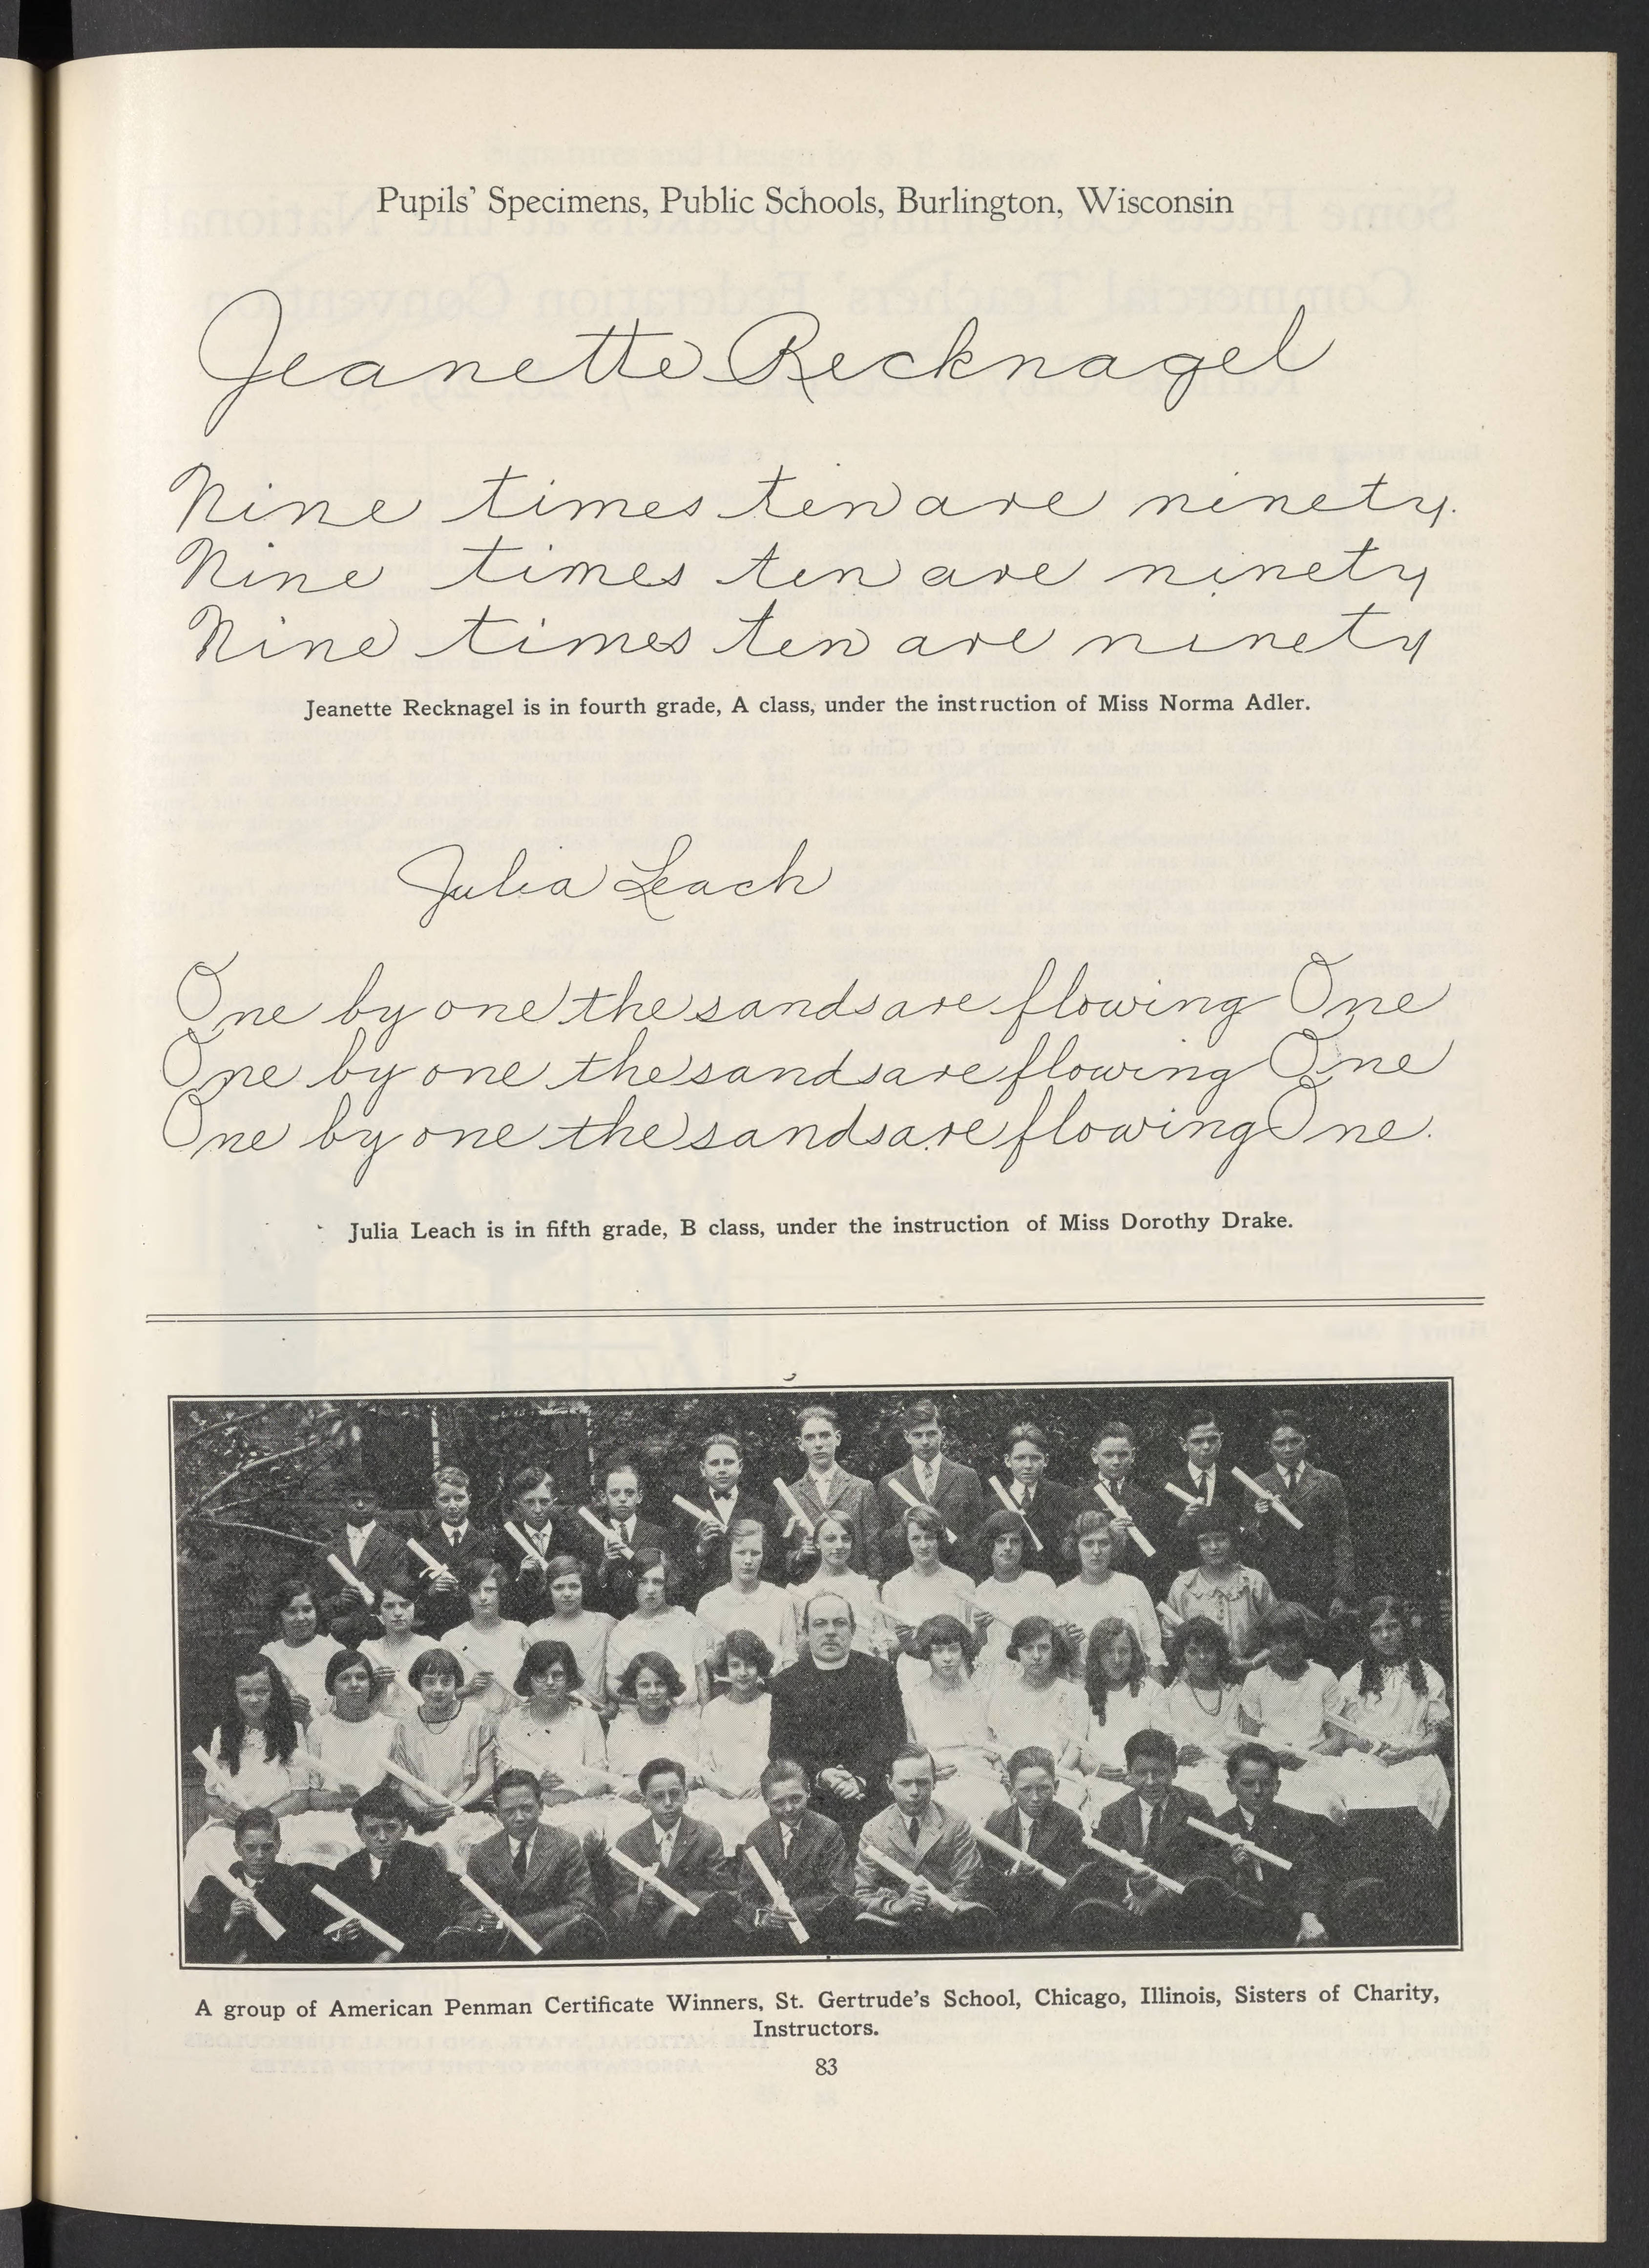 Pupils' Specimens, Public Schools, Burlington, Wisconsin
Jeanette Recknagel
Nine times ten are ninety.
Nine times ten are ninety
Nine times ten are ninety
Jeanette Recknagel is in fourth grade, A class, under the instruction of Miss Norma Adler.
Julia Leach
One by one the sands are flowing One
One by one the sands are flowing One
One by one the sands are flowing One.
Julia Leach is in fifth grade, B class, under the instruction of Miss Dorothy Drake.
A group of American Penman Certificate Winners, St. Gertrude's School, Chicago, Illinois, Sisters of Charity,
Instructors.
83